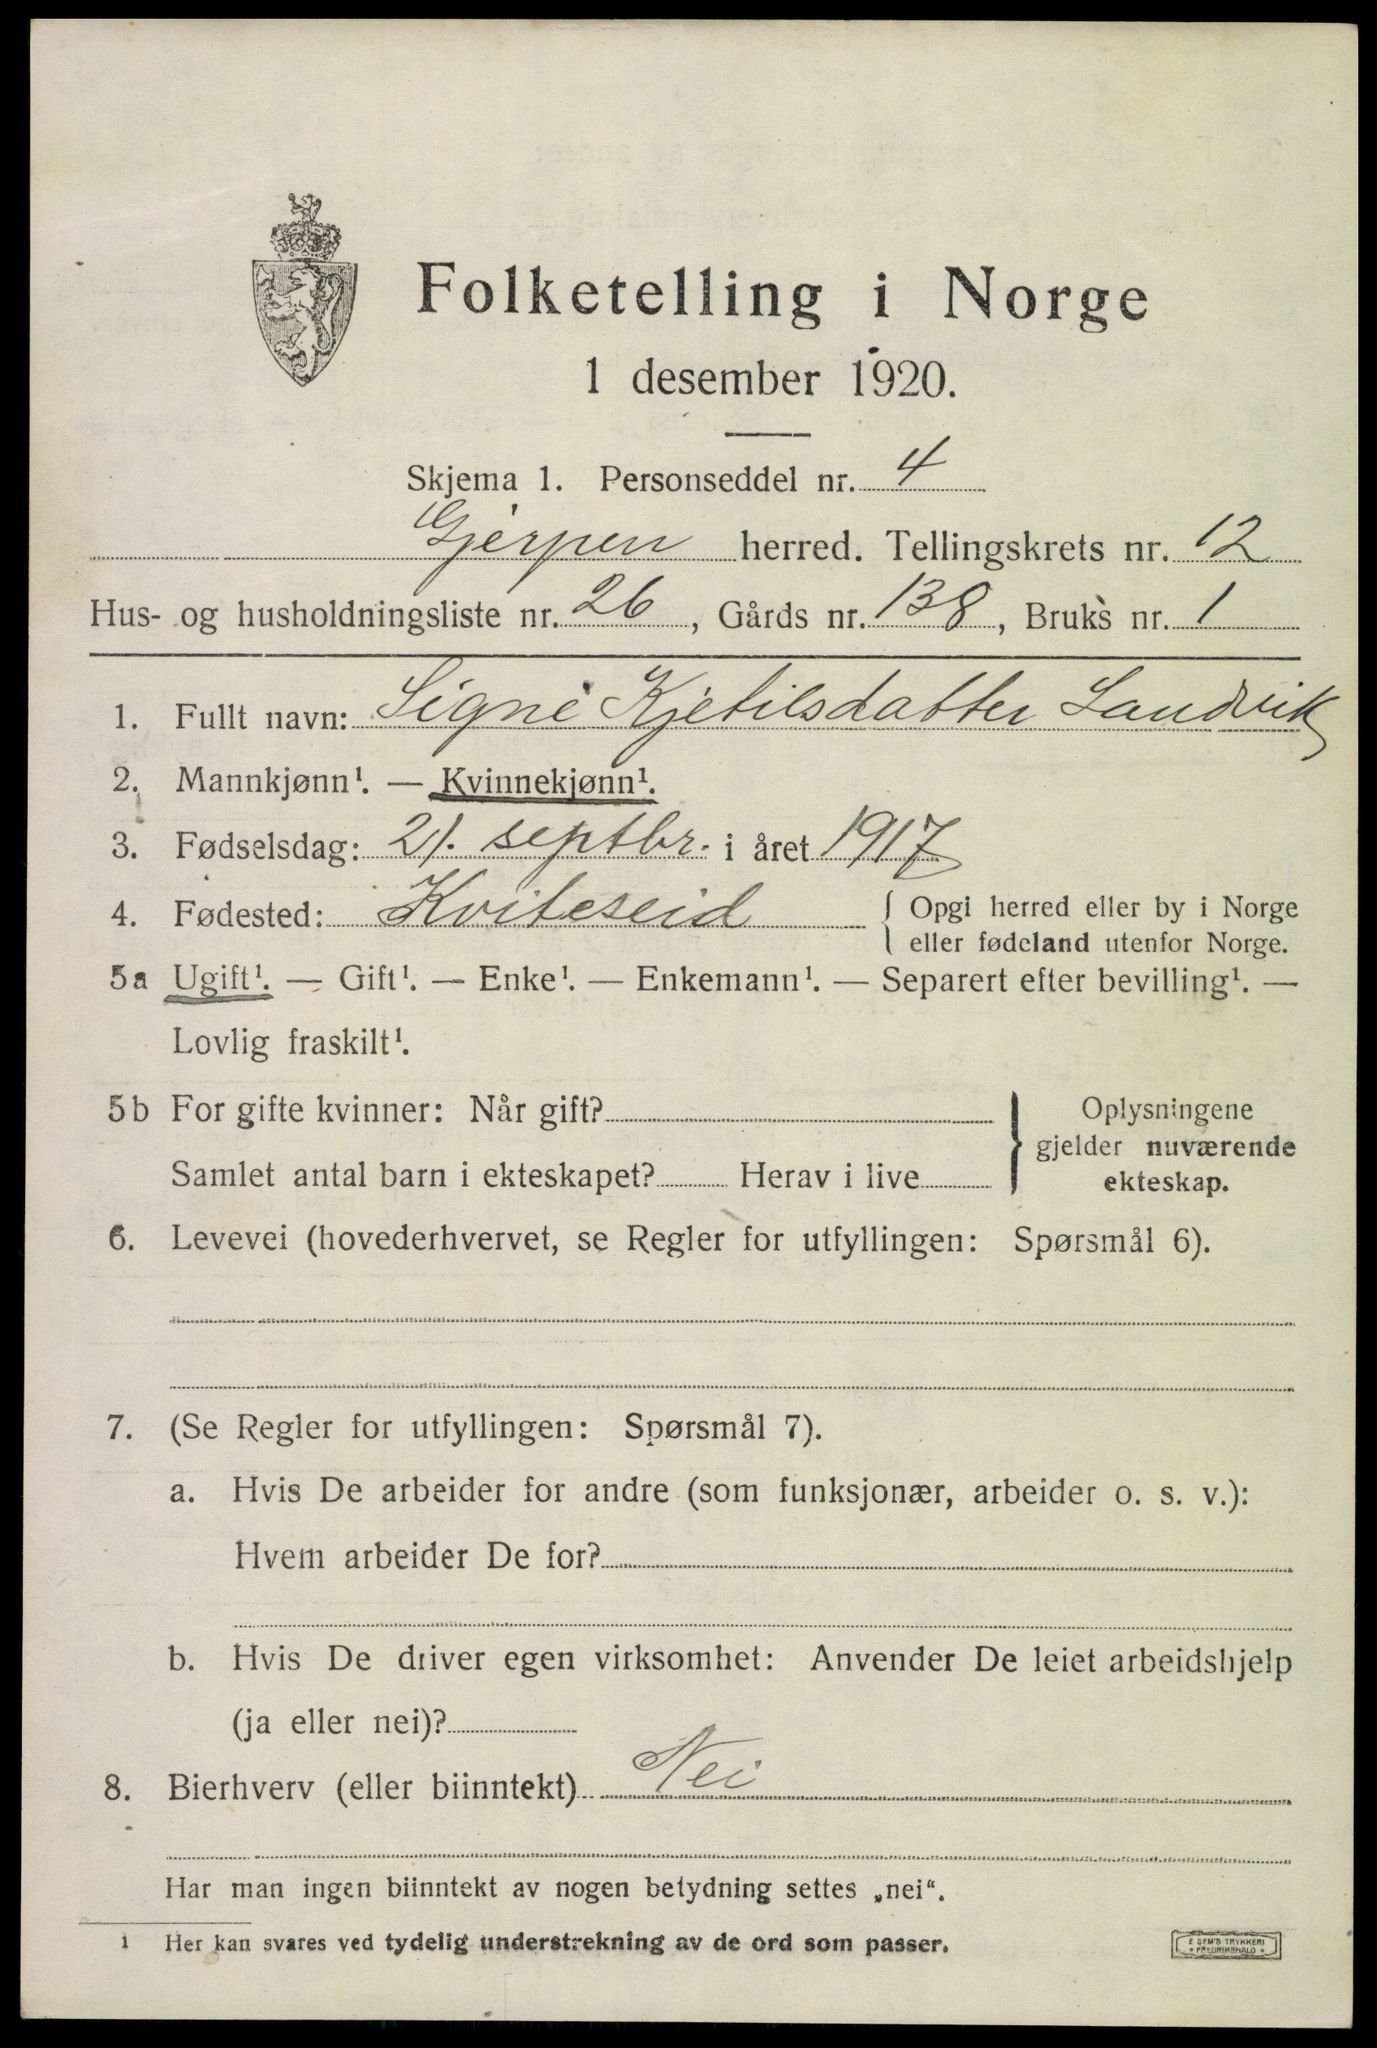 Folketelling i Norge
1 desember 1920.
Skjema 1. Personseddel nr. 4
Gjerpen herred. Tellingskrets nr. 12
Hus- og husholdningsliste nr. 26, Gårds nr. 138, Bruks nr. 1
1. Fullt navn: Signe Kjetilsdatter Landvik
2. Mannkjønn¹. — Kvinnekjønn¹.
3. Fødselsdag: 21. septbr. i året 1917
4. Fødested: Kviteseid { Opgi herred eller by i Norge
eller fødeland utenfor Norge.
5a Ugift¹. — Gift¹. — Enke¹. — Enkemann¹. — Separert efter bevilling¹. —
Lovlig fraskilt¹.
5b For gifte kvinner: Når gift?
Samlet antal barn i ekteskapet? Herav i live
} Oplysningene
gjelder nuværende
ekteskap.
6. Levevei (hovederhvervet, se Regler for utfyllingen: Spørsmål 6).
7. (Se Regler for utfyllingen: Spørsmål 7).
a. Hvis De arbeider for andre (som funksjonær, arbeider o. s. v.):
Hvem arbeider De for?
b. Hvis De driver egen virksomhet: Anvender De leiet arbeidshjelp
(ja eller nei)?
8. Bierhverv (eller biinntekt) Nei
Har man ingen biinntekt av nogen betydning settes „nei“.
1 Her kan svares ved tydelig understrekning av de ord som passer.
E SEM'S TRYKKERI
• FREDRIKSHALD •